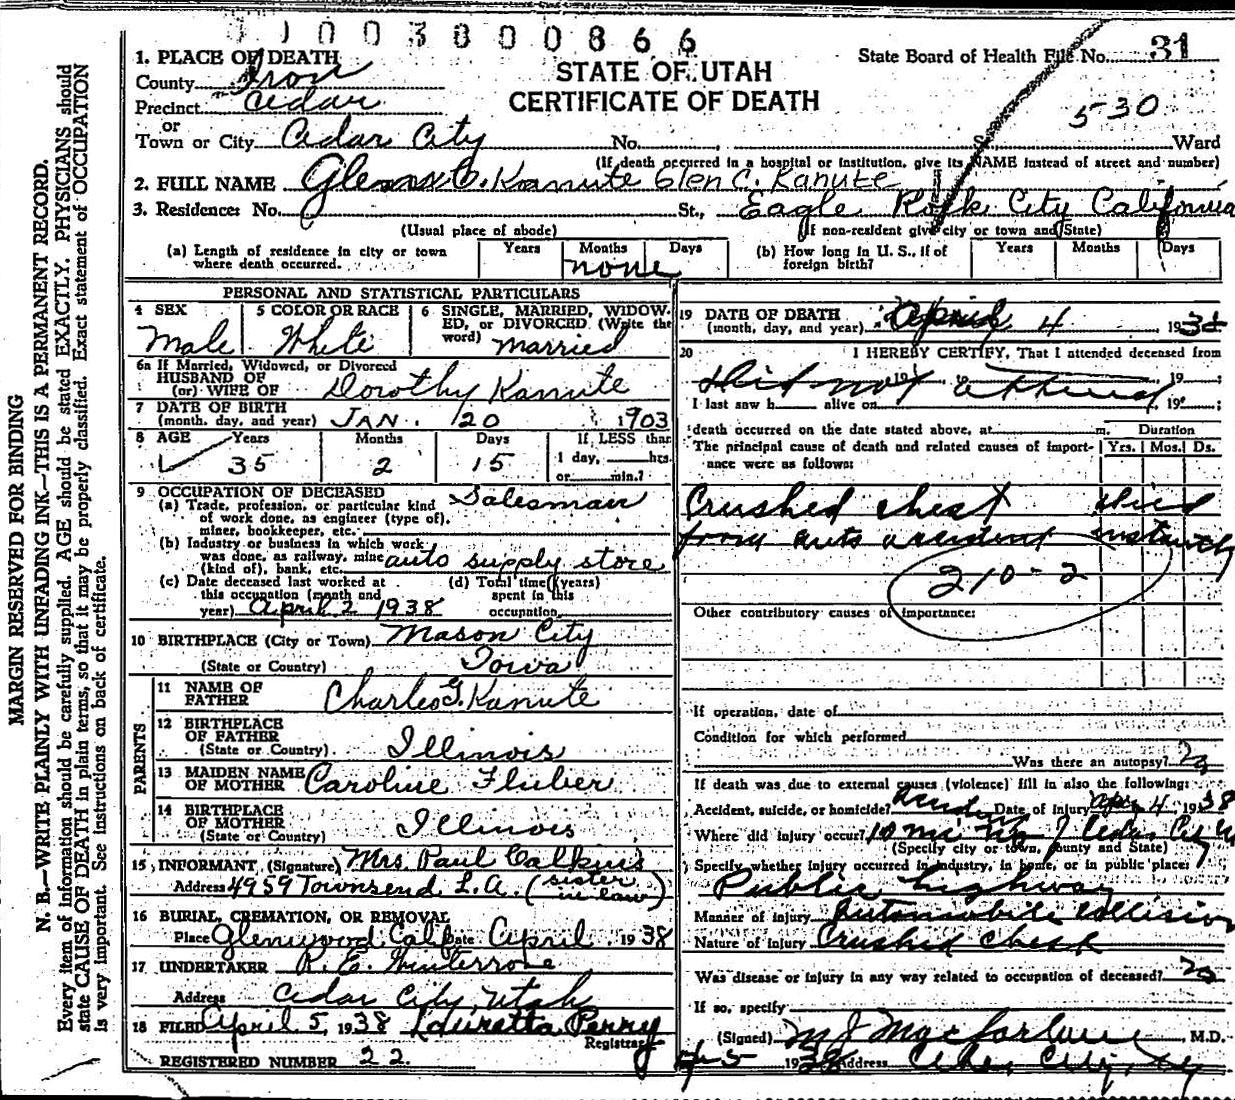 1003800866
1. PLACE OF DEATH
County Iron
Precinct Cedar
or
Town or City Cedar City No. S. Ward
STATE OF UTAH
CERTIFICATE OF DEATH
State Board of Health File No. 31
530
(If death occurred in a hospital or institution, give its NAME instead of street and number)
2. FULL NAME Glenn C. Kanute Glen C. Kanute
3. Residence: No. St., Eagle Rock City California
(Usual place of abode) (If non-resident give city or town and State)
(a) Length of residence in city or town where death occurred. Years Months Days none
(b) How long in U. S., if of foreign birth? Years Months Days
MARGIN RESERVED FOR BINDING
N. B.—WRITE PLAINLY WITH UNFADING INK—THIS IS A PERMANENT RECORD.
Every item of information should be carefully supplied. AGE should be stated EXACTLY. PHYSICIANS should
state CAUSE OF DEATH in plain terms, so that it may be properly classified. Exact statement of OCCUPATION
is very important. See instructions on back of certificate.
PERSONAL AND STATISTICAL PARTICULARS
4 SEX Male
5 COLOR OR RACE White
6 SINGLE, MARRIED, WIDOWED, or DIVORCED (Write the word) Married
6a If Married, Widowed, or Divorced
HUSBAND OF
(or) WIFE OF Dorothy Kanute
7 DATE OF BIRTH
(month, day, and year) JAN. 20 1903
8 AGE Years Months Days If LESS than
35 2 15 1 day, hrs.
or min.?
9 OCCUPATION OF DECEASED
(a) Trade, profession, or particular kind of work done, as engineer (type of), miner, bookkeeper, etc. Salesman
(b) Industry or business in which work was done, as railway, mine (kind of), bank, etc. auto supply store
(c) Date deceased last worked at this occupation (month and year) April 2 1938
(d) Total time (years) spent in this occupation
10 BIRTHPLACE (City or Town) Mason City
(State or Country) Iowa
PARENTS
11 NAME OF FATHER Charles G. Kanute
12 BIRTHPLACE OF FATHER
(State or Country) Illinois
13 MAIDEN NAME OF MOTHER Caroline
14 BIRTHPLACE OF MOTHER
(State or Country) Illinois
15 INFORMANT (Signature) Mrs. Paul Calkins
Address 4959 Townsend L.A. (sister in law)
16 BURIAL, CREMATION, OR REMOVAL
Place Glenwood Calif Date April 1938
17 UNDERTAKER R. E.
Address Cedar City, Utah
18 FILED April 5, 1938 Lauretta Perry
Registrar
REGISTERED NUMBER 22.
19 DATE OF DEATH
(month, day, and year) April 4 1938
20 I HEREBY CERTIFY, That I attended deceased from
did not attend 19
I last saw h alive on 19 ;
death occurred on the date stated above, at m. Duration
The principal cause of death and related causes of importance were as follows: Yrs. Mos. Ds.
Crushed chest died
from auto accident instantly
210-2
Other contributory causes of importance:
If operation, date of
Condition for which performed
Was there an autopsy? no
If death was due to external causes (violence) fill in also the following:
Accident, suicide, or homicide? Date of injury Apr 4 1938
Where did injury occur? 10 mi Cedar City
(Specify city or town, county and State)
Specify whether injury occurred in industry, in home, or in public place:
Public highway
Manner of injury Automobile collision
Nature of injury Crushed chest
Was disease or injury in any way related to occupation of deceased? no
If so, specify
(Signed) M J Macfarlane M.D.
4-5 1938 Address Cedar City,